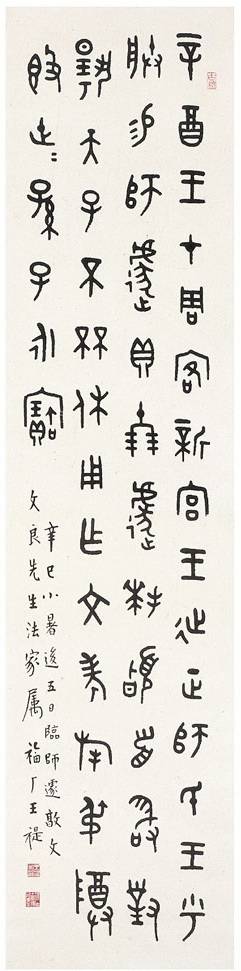 辛酉王才周客新宮王延正師氏王乎
朕易師遽貝十朋遽拜稽首敢對
揚天子不丕休用乍文考旄叔尊
𣪘世孫子永寶
辛巳小暑後五日臨師遽敦文
文良先生法家属 福厂王禔